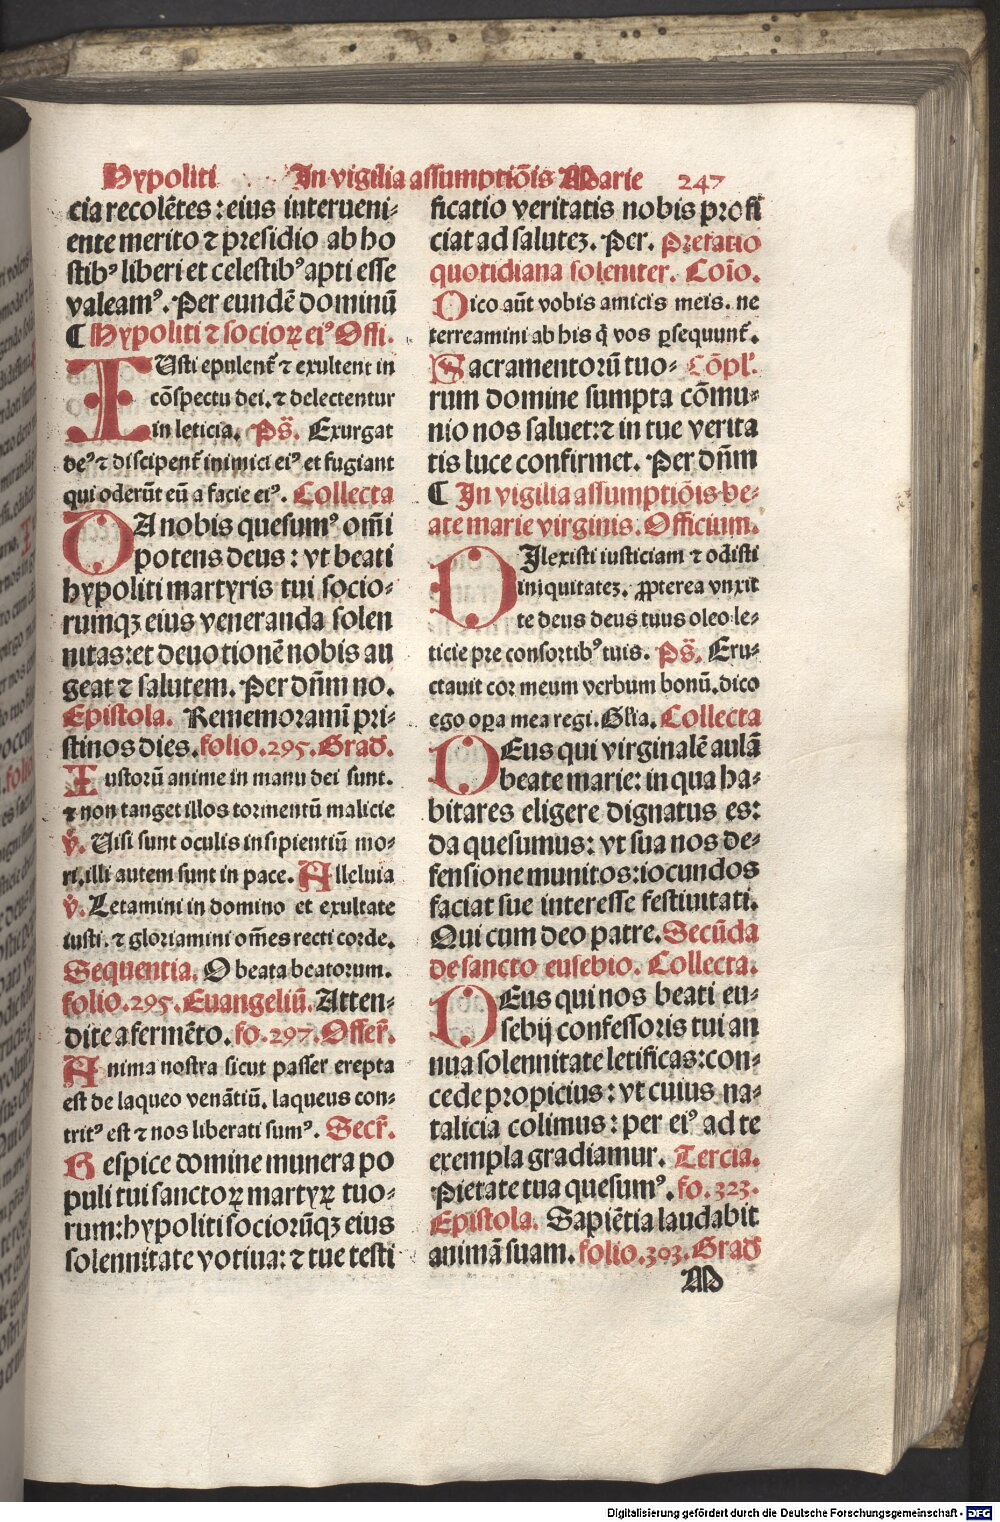 Hypoliti In vigilia assumptiōis Marie 247
cia recolētes : eius interueni-
ente merito ⁊ presidio ab ho
stibꝰ liberi et celestibꝰ apti esse
valeamꝰ. Per eundē dominū
¶ Hypoliti ⁊ socioꝝ eiꝰ Offi.
IUsti epulent᷑ ⁊ exultent in
cōspectu dei. ⁊ delectentur
in leticia. Ps̄. Exurgat
deꝰ ⁊ discipent᷑ inimici eiꝰ et fugiant
qui oderūt eū a facie eiꝰ. Collecta
DA nobis quesumꝰ om̄i
potens deus : vt beati
hypoliti martyris tui socio-
rumqꝫ eius veneranda solen
nitas: et deuotionē nobis au
geat ⁊ salutem. Per dn̄m no.
Epistola. Rememoramī pri-
stinos dies. folio. 295. Grad̄.
Iustorū anime in manu dei sunt.
⁊ non tanget illos tormentū malicie
v̄. Uisi sunt oculis insipientiū mo-
ri. illi autem sunt in pace. Alleluia
v̄. Letamini in domino et exultate
iusti. ⁊ gloriamini om̄es recti corde.
Sequentia. O beata beatorum.
folio. 295. Euangeliū. Atten-
dite a fermēto. fo. 297. Offer̄.
Anima nostra sicut passer erepta
est de laqueo venātiū. laqueus con-
tritꝰ est ⁊ nos liberati sumꝰ. Secr̄.
Respice domine munera po
puli tui sanctoꝝ martyꝝ tuo-
rum: hypoliti sociorūqꝫ eius
solennitate votiua: ⁊ tue testi
ficatio veritatis nobis profi
ciat ad saluteꝫ. Per. Prefatio
quotidiana soleniter. Coīo.
Dico aūt vobis amicis meis. ne
terreamini ab his q̄ vos ꝑsequunt᷑.
Sacramentorū tuo- Cōpl̄.
rum domine sumpta cōmu-
nio nos saluet: ⁊ in tue verita
tis luce confirmet. Per dn̄m
¶ In vigilia assumptiōis be-
ate marie virginis. Officium.
DIlexisti iusticiam ⁊ odisti
iniquitateꝫ. ꝓpterea vnxit
te deus deus tuus oleo le-
ticie pre consortibꝰ tuis. Ps̄. Eru-
ctauit cor meum verbum bonū. dico
ego oꝑa mea regi. Gl̄ia. Collecta
DEus qui virginalē aulā
beate marie: in qua ha-
bitares eligere dignatus es:
da quesumus: vt sua nos de-
fensione munitos: iocundos
faciat sue interesse festiuitati.
Qui cum deo patre. Secūda
de sancto eusebio. Collecta.
DEus qui nos beati eu-
sebij confessoris tui an
nua solennitate letificas: con-
cede propicius: vt cuius na-
talicia colimus: per eiꝰ ad te
exempla gradiamur. Tercia.
Pietate tua quesumꝰ. fo. 323.
Epistola. Sapiētia laudabit
animā suam. folio. 303. Grad̄
M
Digitalisierung gefördert durch die Deutsche Forschungsgemeinschaft - DFG